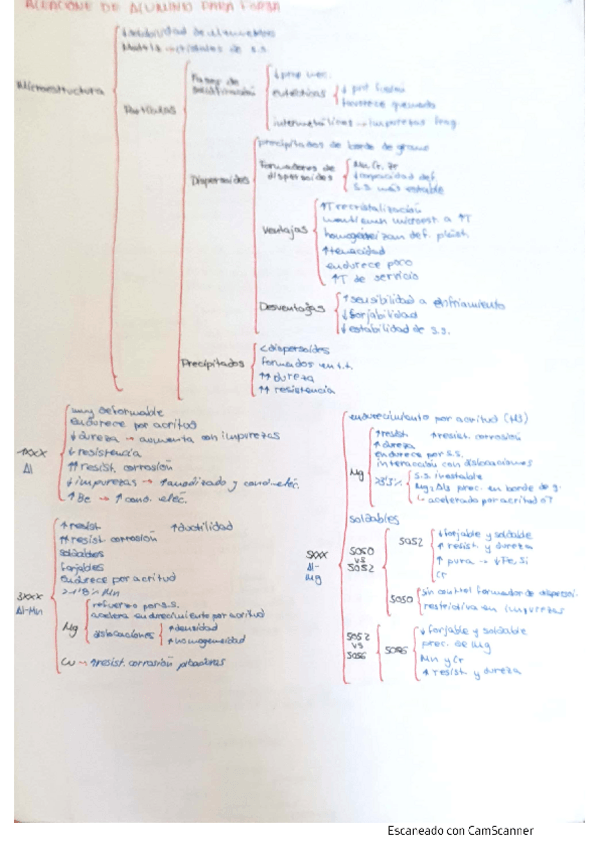 ALEACIONE DE ALUMINIO PARA FORJA
Microestructura
↓ solubilidad de
Matriz → cristales de s.s.
Partículas
Fases de solidificación
↓ prop mec.
eutécticas
↓ pto fusión
favorece quemado
intermetálicos → impurezas frag.
Dispersoides
precipitados de borde de grano
Formadores de dispersoides
Mn, Cr, Zr
↓ capacidad def.
s.s. más estable
Ventajas
↑T recristalización
mantienen microest. a ↑T
homogeneizan def. plást.
↑ tenacidad
endurece poco
↑T de servicio
Desventajas
↑ sensibilidad a enfriamiento
↓ forjabilidad
↓ estabilidad de s.s.
Precipitados
< dispersoides
formados en t.t.
↑↑ dureza
↑↑ resistencia
1xxx
Al
muy deformable
endurece por acritud
↓ dureza → aumenta con impurezas
↓ resistencia
↑↑ resist. corrosión
↓ impurezas → ↑ anodizado y cond. elec.
↑ Be → ↑ cond. eléc.
3xxx
Al-Mn
↑ resist ↑ ductilidad
↑↑ resist. corrosión
soldables
forjables
endurece por acritud
% Mn
Mg
refuerzo por s.s.
acelera endurecimiento por acritud
dislocaciones
↑ densidad
↑ homogeneidad
Cu → ↑ resist. corrosión picaduras
5xxx
Al-Mg
endurecimiento por acritud (H3)
Mg
↑ resist. ↑ resist. corrosión
↑ dureza
endurece por s.s.
interacción con dislocaciones
>3'5%
s.s. inestable
prec. en borde de g.
acelerado por acritud o T
soldables
5050 vs 5052
5052
↓ forjable y soldable
↑ resist y dureza
↑ pura → ↓ Fe, Si
Cr
5050
sin control formador de dispersoi.
restrictiva en impurezas
5052 vs 5056
5056
↓ forjable y soldable
prec. de Mg
Mn y Cr
↑ resist y dureza
Escaneado con CamScanner